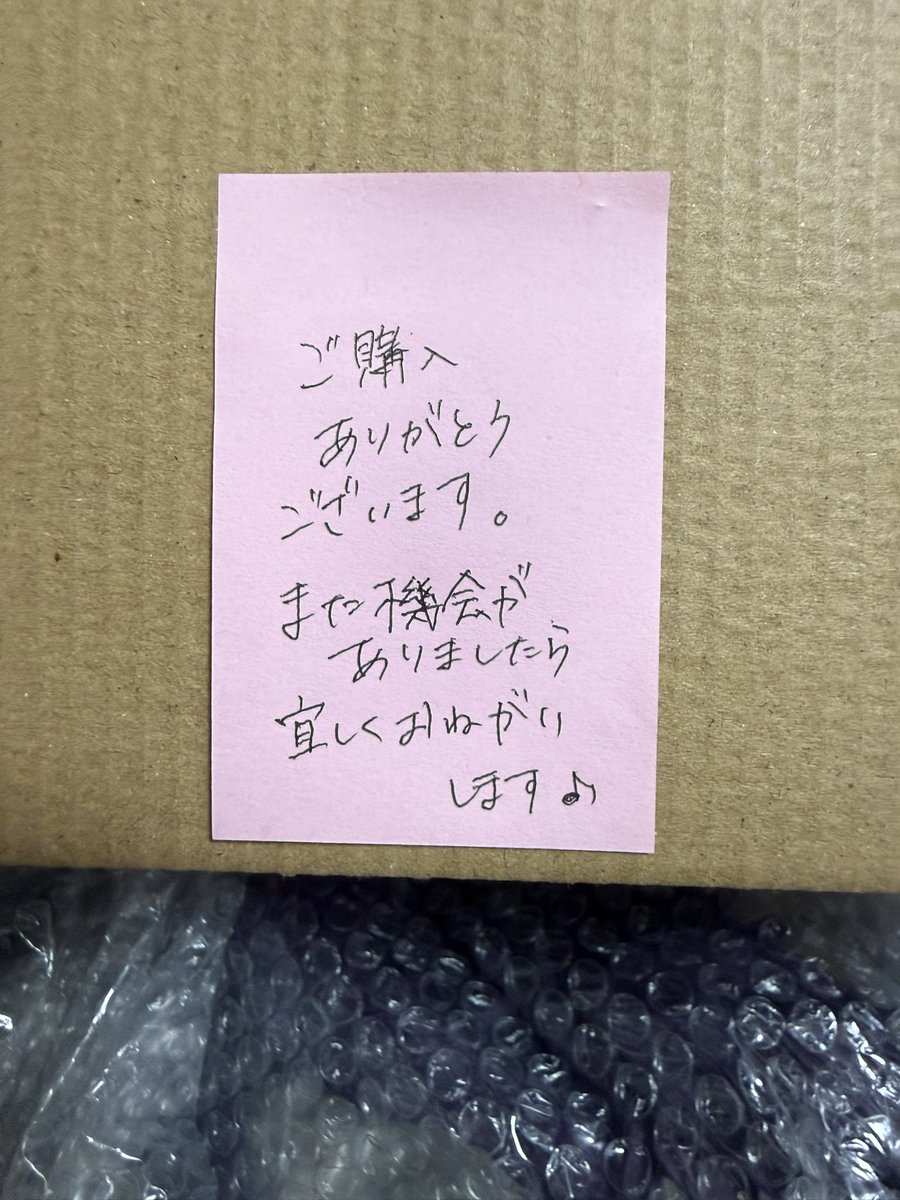 ご購入
ありがとう
ございます。
また機会が
ありましたら
宜しくおねがい
します♪